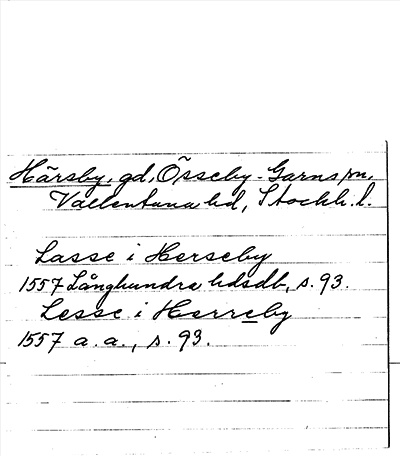 Härsby, gd, Össeby-Garns sn,
Vallentuna hd, Stockh. l.
Lasse i Herseby
1557 Långhundra hdsdb, s. 93.
Lesse i Herreby
1557 a. a., s. 93.